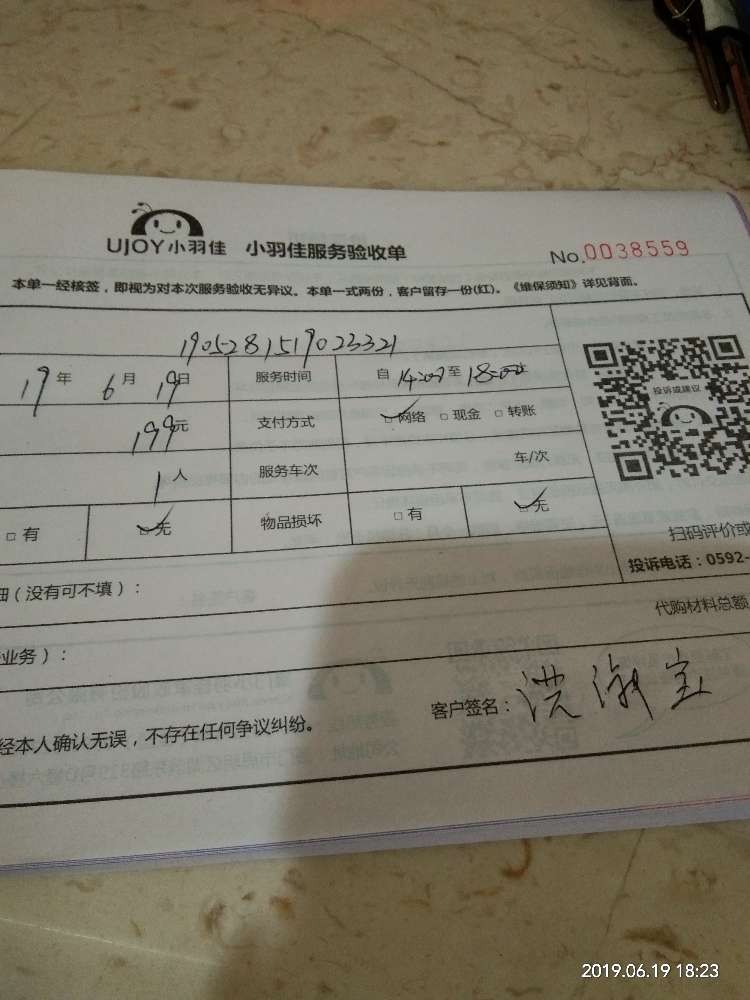 UJOY小羽佳 小羽佳服务验收单 No.0038559
本单一经核签，即视为对本次服务验收无异议。本单一式两份，客户留存一份(红)。《维保须知》详见背面。
1905281519023321
19年 6月 19日 服务时间 自 14:00 至 18:00 止
199元 支付方式 网络 □ 现金 □ 转账
1人 服务车次 车/次
□ 有 无 物品损坏 □ 有 无
投诉或建议
扫码评价或
投诉电话：0592-
细（没有可不填）：
代购材料总额
业务）：
经本人确认无误，不存在任何争议纠纷。 客户签名：洪
2019.06.19 18:23